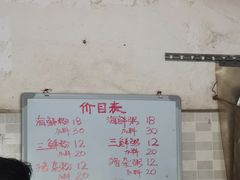 价目表
海鲜粉 18 海鲜粥 18
加料 30 加料 30
三鲜粉 12 三鲜粥 12
加料 20 加料 20
猪杂粉 12 猪杂粥 12
加料 20 加料 20